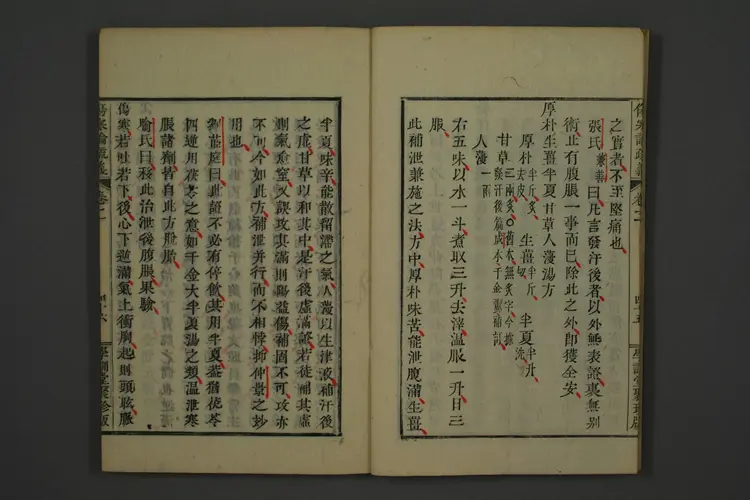 之實者不至堅痛也
張氏兼善曰凡言發汗後者以外無表證裏無別
術止有腹脹一事而已除此之外卽獲全安
厚朴生薑半夏甘草人薓湯方
厚朴半斤炙去皮 生薑半斤 半夏半升洗
甘草
人薓一兩
右五味以水一斗煮取三升去滓溫服一升日三
服
此補泄兼施之法方中厚朴味苦能泄腹滿生薑
半夏味辛能散留滯之氣人薓以生津液補汗後
之虛甘草以和其中是汗後虛滿
則氣愈窒又誤攻其滿則陽益傷補固不可攻亦
不可今如此方補泄并行而不相悖抑仲景之妙
用也
此證不必有停飲其用半夏蓋猶
之意如千金大半夏湯之類溫寒
脹諸劑皆自此方
喻氏曰移此治泄後腹脹果驗
傷寒若吐若下後心下逆滿氣上衝胸起則頭眩脈
傷寒論疏義
卷二
四十五
四十六